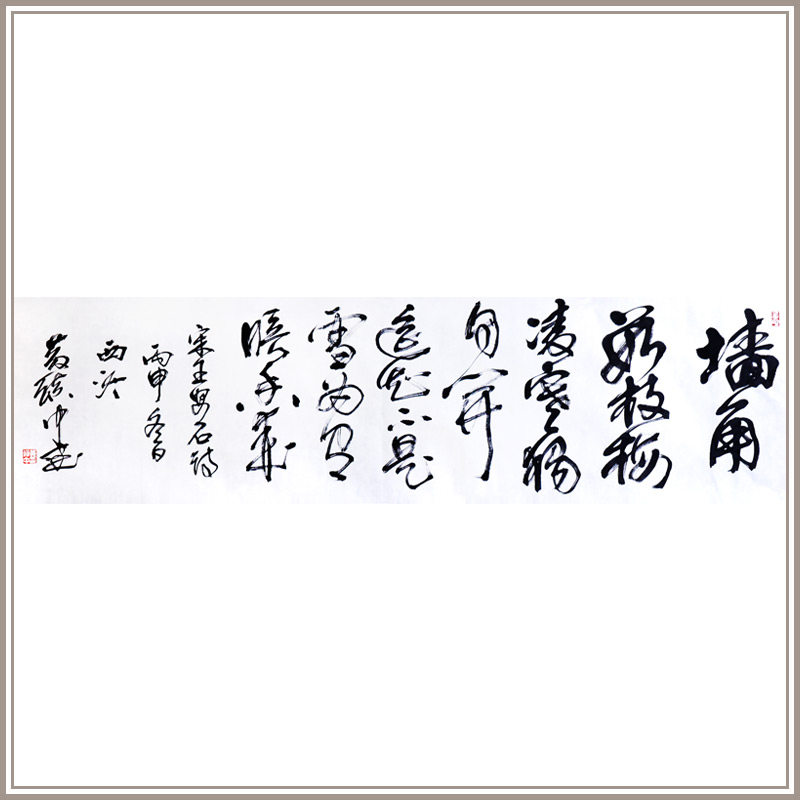 墙角
数枝梅
凌寒独
自开
遥知不是
雪为有
暗香来
宋王安石诗
丙申冬日
西泠
黄中书